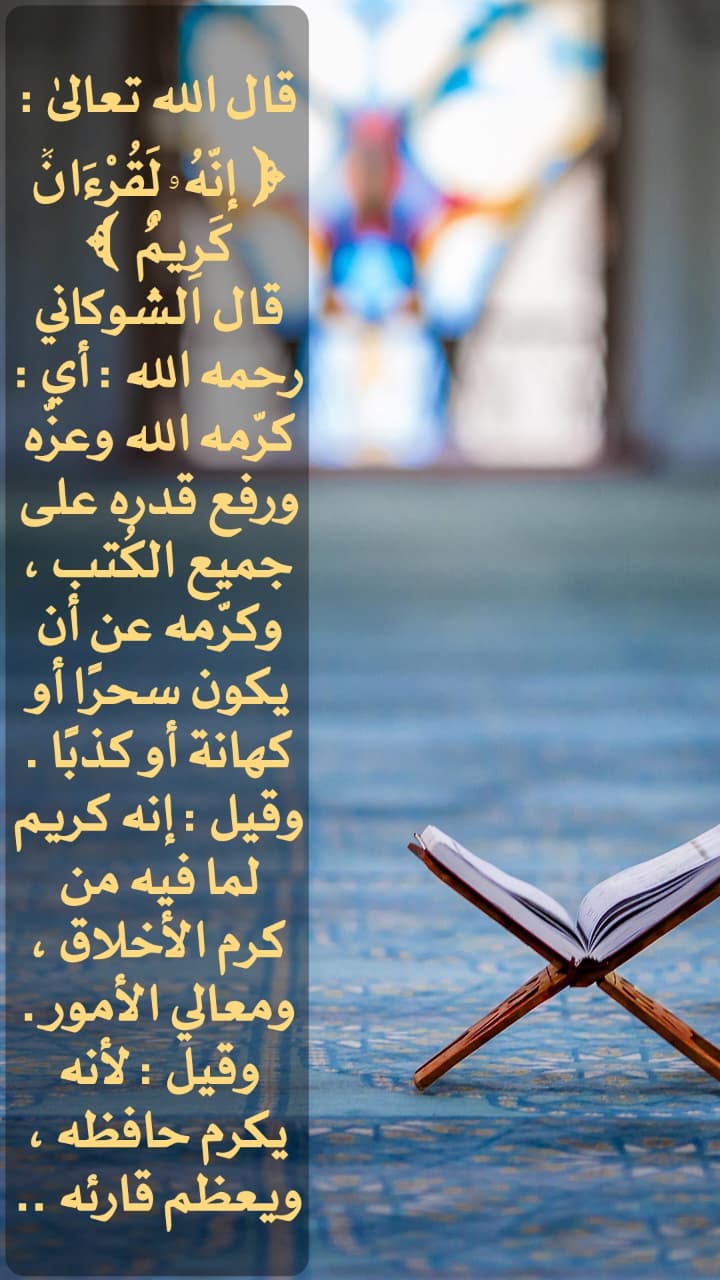 قال الله تعالىٰ :
﴿ إِنَّهُۥ لَقُرْءَانٌ
كَرِيمٌ ﴾
قال الشوكاني
رحمه الله : أي :
كرّمه الله وعزّه
ورفع قدره على
جميع الكُتب ،
وكرّمه عن أن
يكون سحرًا أو
كهانة أو كذبًا .
وقيل : إنه كريم
لما فيه من
كرم الأخلاق ،
ومعالي الأمور.
وقيل : لأنه
يكرم حافظه ،
ويعظم قارئه ..